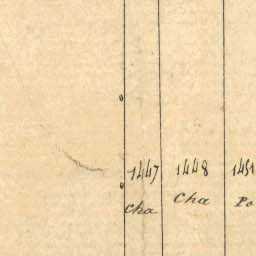 1447 1448 1451
Cha Cha Po